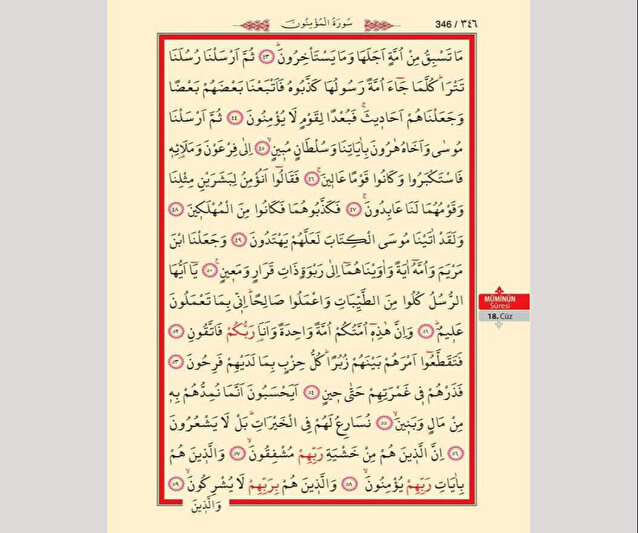 346 / ٣٤٦
سُورَةُ الْمُؤْمِنُونَ
مَا تَسْبِقُ مِنْ اُمَّةٍ اَجَلَهَا وَمَا يَسْتَأْخِرُونَۜ ﴿٤٣﴾ ثُمَّ اَرْسَلْنَا رُسُلَنَا
تَتْرٰاۜ كُلَّمَا جَٓاءَ اُمَّةً رَسُولُهَا كَذَّبُوهُ فَاَتْبَعْنَا بَعْضَهُمْ بَعْضًا
وَجَعَلْنَاهُمْ اَحَاد۪يثَۚ فَبُعْدًا لِقَوْمٍ لَا يُؤْمِنُونَ ﴿٤٤﴾ ثُمَّ اَرْسَلْنَا
مُوسٰى وَاَخَاهُ هٰرُونَ بِاٰيَاتِنَا وَسُلْطَانٍ مُب۪ينٍۙ ﴿٤٥﴾ اِلٰى فِرْعَوْنَ وَمَلَا۬ئِه۪
فَاسْتَكْبَرُوا وَكَانُوا قَوْمًا عَال۪ينَۚ ﴿٤٦﴾ فَقَالُٓوا اَنُؤْمِنُ لِبَشَرَيْنِ مِثْلِنَا
وَقَوْمُهُمَا لَنَا عَابِدُونَۚ ﴿٤٧﴾ فَكَذَّبُوهُمَا فَكَانُوا مِنَ الْمُهْلَك۪ينَ ﴿٤٨﴾
وَلَقَدْ اٰتَيْنَا مُوسَى الْكِتَابَ لَعَلَّهُمْ يَهْتَدُونَ ﴿٤٩﴾ وَجَعَلْنَا ابْنَ
مَرْيَمَ وَاُمَّهُٓ اٰيَةً وَاٰوَيْنَاهُمَٓا اِلٰى رَبْوَةٍ ذَاتِ قَرَارٍ وَمَع۪ينٍ۟ ﴿٥٠﴾ يَٓا اَيُّهَا
الرُّسُلُ كُلُوا مِنَ الطَّيِّبَاتِ وَاعْمَلُوا صَالِحًاۜ اِنّ۪ي بِمَا تَعْمَلُونَ
عَل۪يمٌۜ ﴿٥١﴾ وَاِنَّ هٰذِه۪ٓ اُمَّتُكُمْ اُمَّةً وَاحِدَةً وَاَنَا۬ رَبُّكُمْ فَاتَّقُونِ ﴿٥٢﴾
فَتَقَطَّعُٓوا اَمْرَهُمْ بَيْنَهُمْ زُبُرًاۜ كُلُّ حِزْبٍ بِمَا لَدَيْهِمْ فَرِحُونَ ﴿٥٣﴾
فَذَرْهُمْ ف۪ي غَمْرَتِهِمْ حَتّٰى ح۪ينٍ ﴿٥٤﴾ اَيَحْسَبُونَ اَنَّمَا نُمِدُّهُمْ بِه۪
مِنْ مَالٍ وَبَن۪ينَۙ ﴿٥٥﴾ نُسَارِعُ لَهُمْ فِي الْخَيْرَاتِۜ بَلْ لَا يَشْعُرُونَ
﴿٥٦﴾ اِنَّ الَّذ۪ينَ هُمْ مِنْ خَشْيَةِ رَبِّهِمْ مُشْفِقُونَۙ ﴿٥٧﴾ وَالَّذ۪ينَ هُمْ
بِاٰيَاتِ رَبِّهِمْ يُؤْمِنُونَۙ ﴿٥٨﴾ وَالَّذ۪ينَ هُمْ بِرَبِّهِمْ لَا يُشْرِكُونَۙ ﴿٥٩﴾
وَالَّذ۪ينَ
MÜMİNÛN
Sûresi
18. Cüz